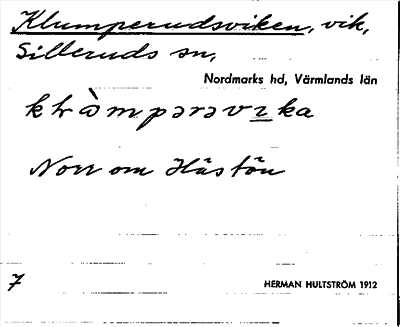 Klumperudsviken, vik,
Silleruds sn,
Nordmarks hd, Värmlands län
Norr om Hästön
7
HERMAN HULTSTRÖM 1912